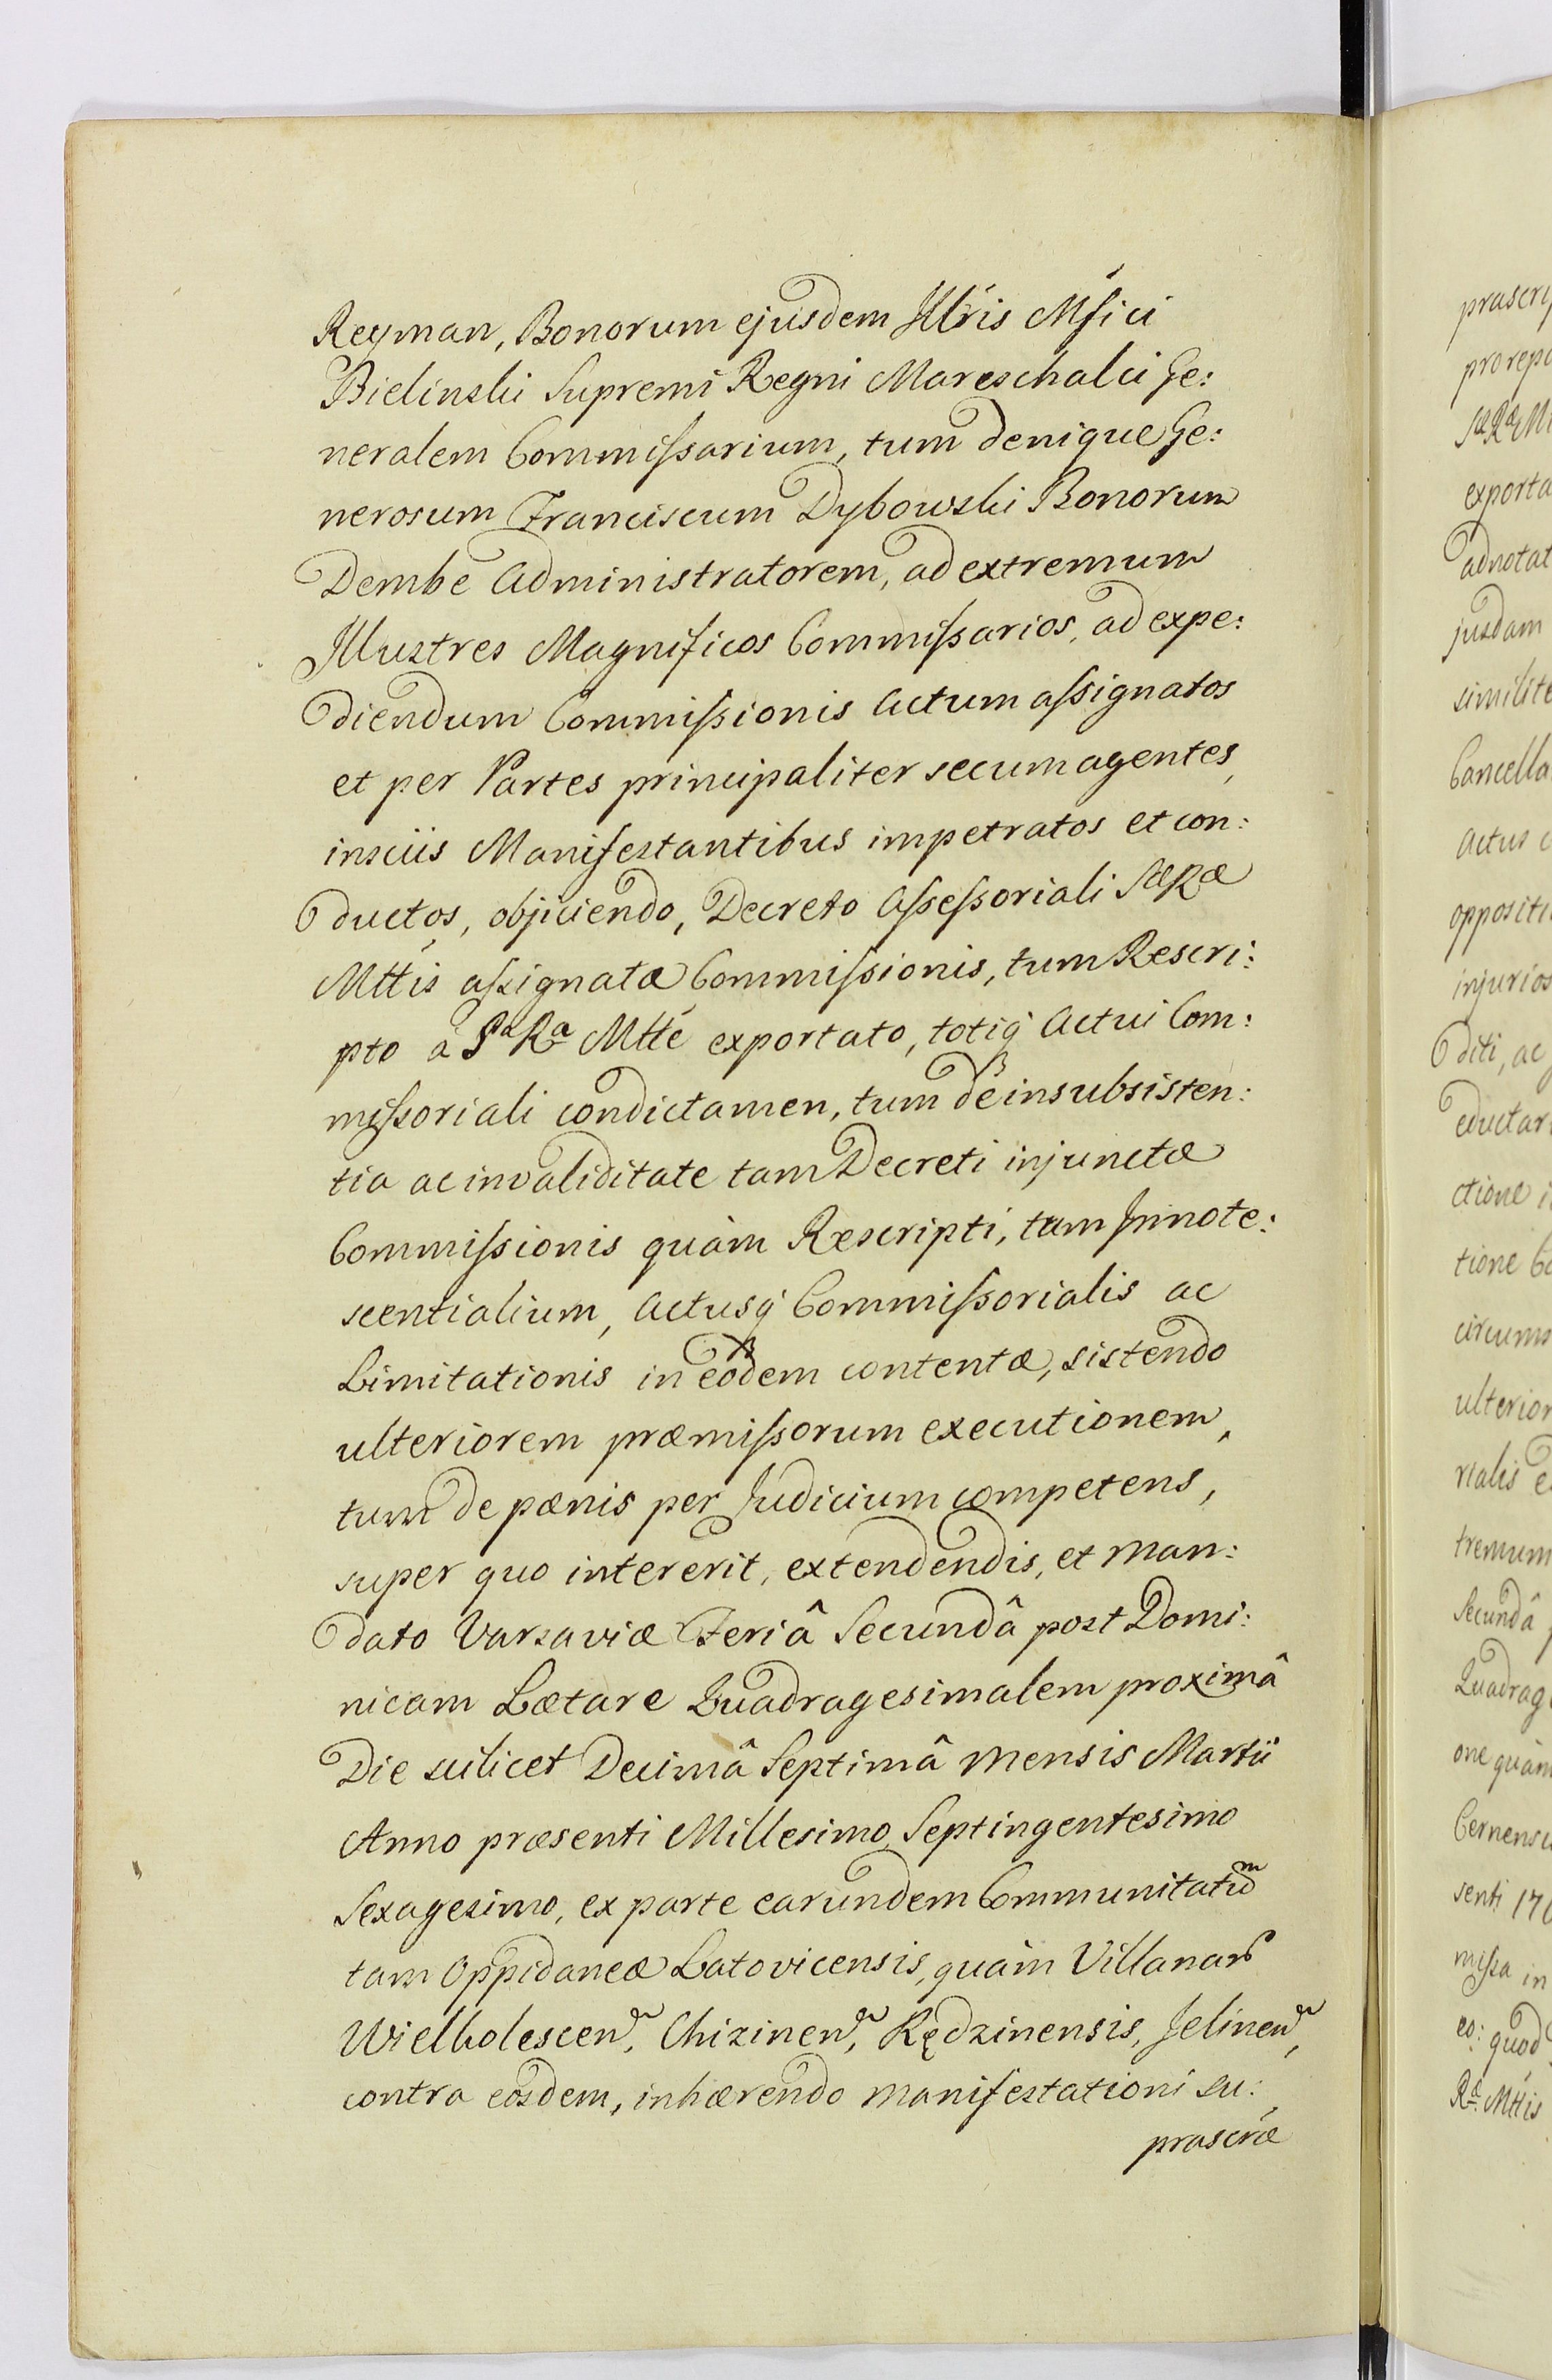 Reyman, Bonorum ejusdem Illris Mfici
Bielinski Supremi Regni Mareschalci Ge:
neralem Commissarium, tum denique Ge:
nerosum Franciscum Dybowski Bonorum
Dembe Administratorem, ad extremum
Illustres Magnificos Commissarios, ad expe:
diendum Commissionis Actum assignatos
et per Partes principaliter secum agentes,
insciis Manifestantibus impetratos et con:
ductos, objiciendo, Decreto Assessoriali Sæ Ræ
Mttis assignatæ Commissionis, tum Rescri:
pto à Sa Ra Mtte exportato, totiq Actui Com:
missoriali condictamen, tum de insubsisten:
tia ac invaliditate tam Decreti injunctæ
Commissionis quàm Rescripti, tam Innote:
scentialium, Actusq Commissorialis ac
Limitationis in eodem contentæ, sistendo
ulteriorem præmissorum executionem,
tum de pænis per Judicium competens,
super quo intererit, extendendis, et man:
dato Varsaviæ Feriâ Secundâ post Domi:
nicam Lætare Quadragesimalem proximâ
Die scilicet Decimâ Septimâ mensis Martii
Anno præsenti Millesimo Septingentesimo
Sexagesimo, ex parte earundem Communitatum
tam Oppidaneæ Latovicensis, quàm Villanar
Wielholescen, Chizinen, Kędzinensis, Jelinen,
contra eosdem, inhærendo manifestationi su:
prascræ
prascrip
pro repo
Sæ Ræ Mt
exporta
adnotat
jusdam
similite
Cancella
Actus c
oppositi
injurios
diti, ac
eductar
ctione i
tione Co
circums
ulterior
rialis e
tremum
Secundâ p
Quadrag
one quàm
Cernensi
senti 176
missa in
eo: quod
Ræ Mttis